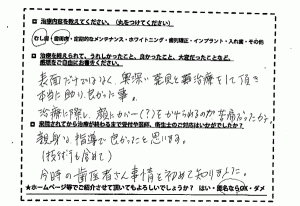 ■ 治療内容を教えてください。（丸をつけてください）
むし歯・歯周病・定期的なメンテナンス・ホワイトニング・歯列矯正・インプラント・入れ歯・その他
■ 治療を終えられて、うれしかったこと、良かったこと、大変だったことなど、
感想をご自由にお書きください。
表面だけではなく、奥深い 治療をして頂き
本当に助り良かった事。
治療に際し、顔にカバー(?)をかけられるのが苦痛だったか。
■ 来院されてから治療が終わるまで受付や医師、衛生士のご対応はいかがでしたか？
親身な指導で良かったと思います。
(技術も含めて)
今時の歯医者さん事情を初めて知りました。
★ホームページ等でご紹介させて頂いてもよろしいでしょうか？ はい・匿名ならOK・ダメ